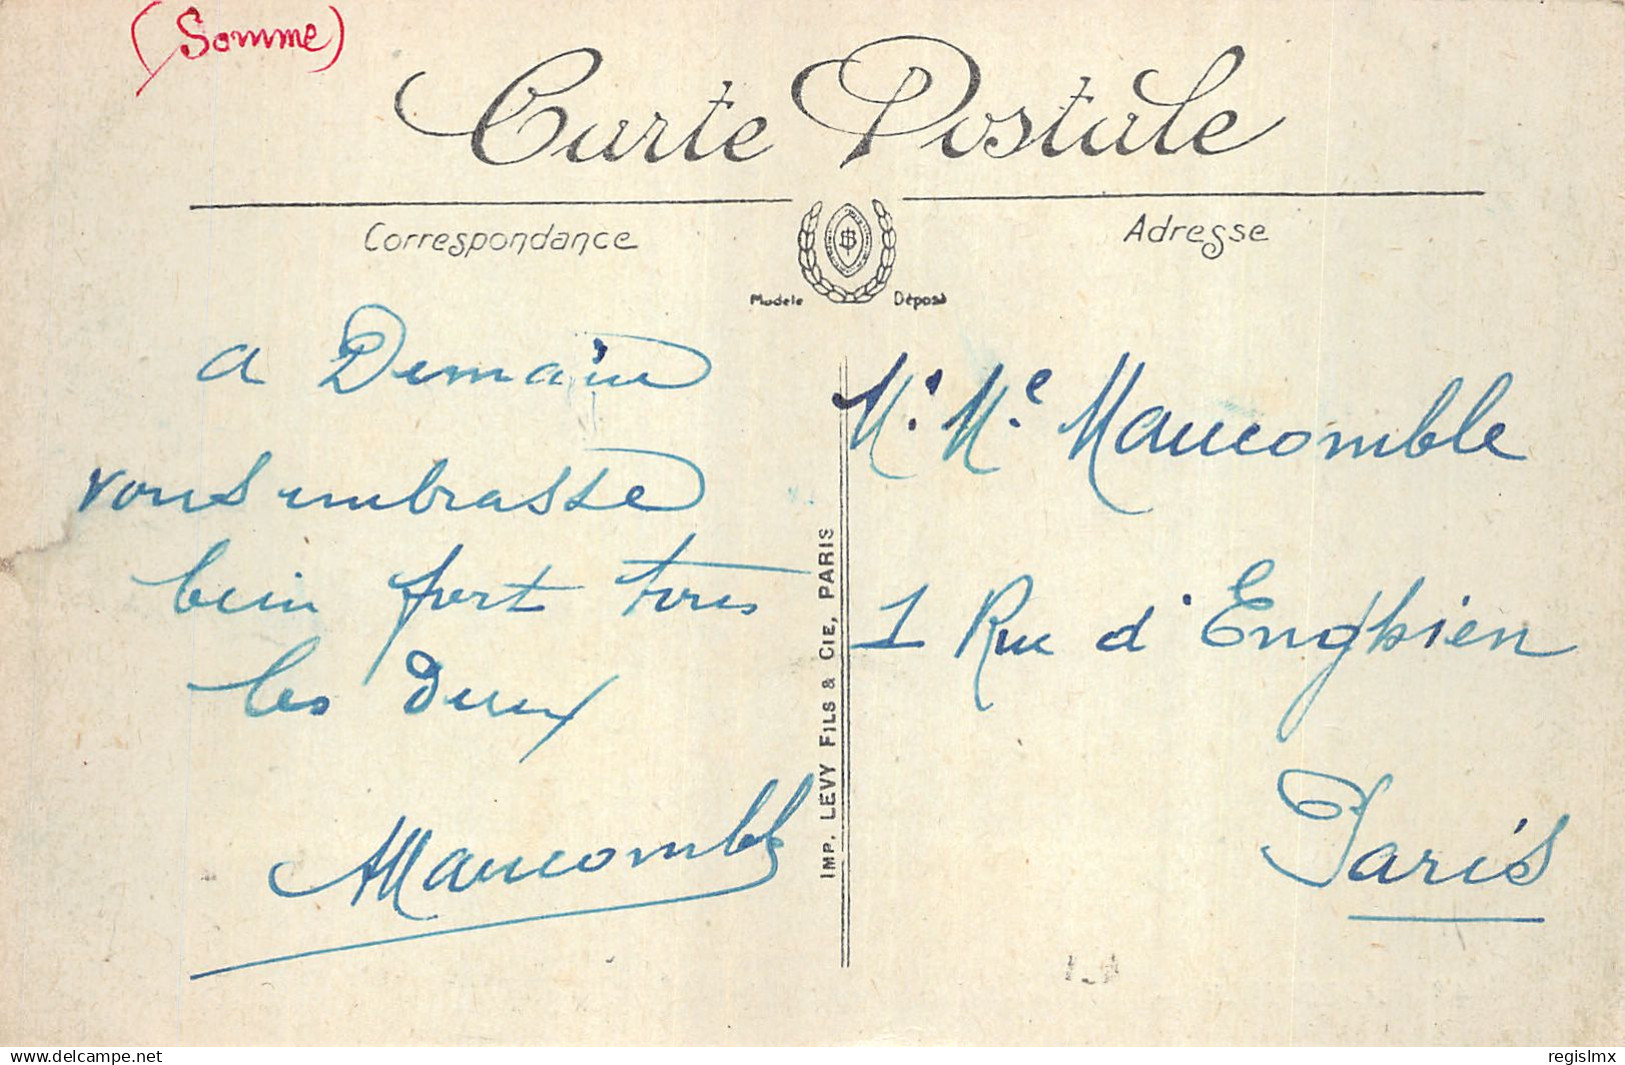 (Somme)
Carte Postale
Correspondance
Adresse
Modèle Déposé
a Demain
vous embrasse
bien fort tous
les Deux
AMaucomble
M. Me Maucomble
1 Rue d'Enghien
Paris
IMP. LEVY FILS & CIE, PARIS
www.delcampe.net
regislmx